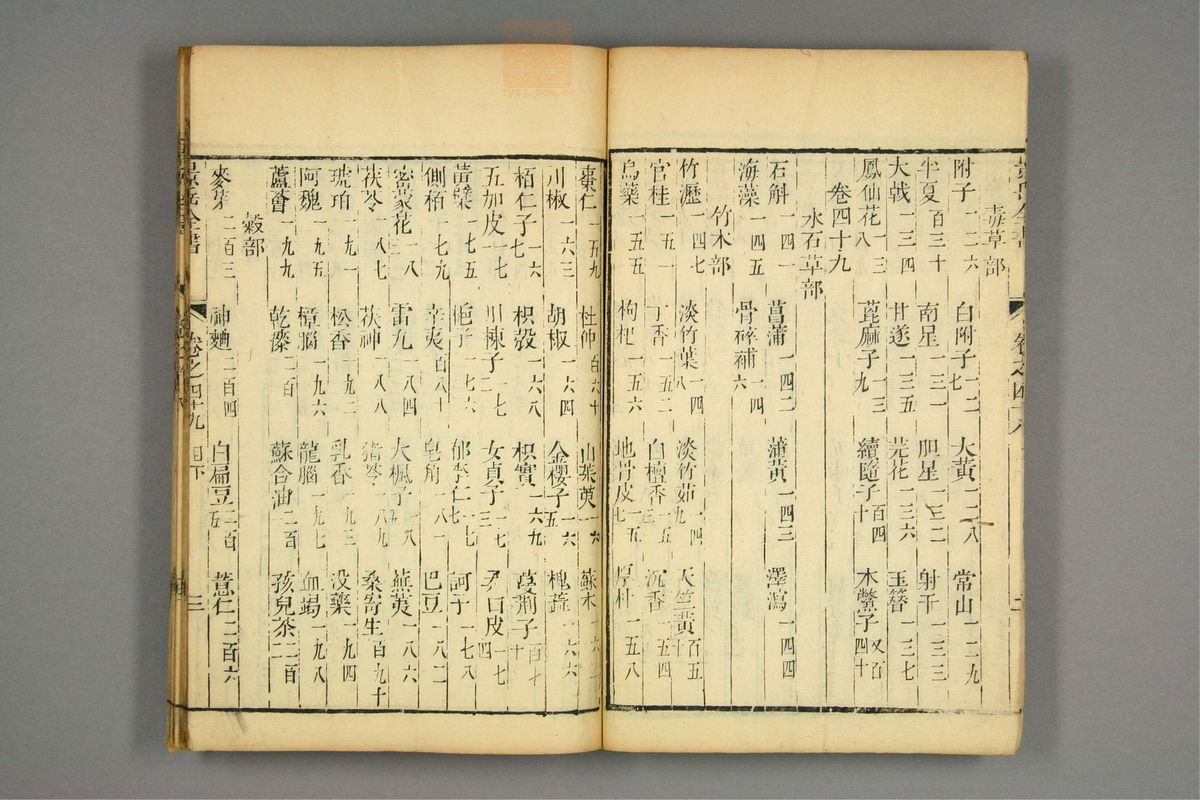 毒草部
附子一二六 白附子一二七 大黃一二八 常山一二九
半夏百三十 南星一三一 胆星一三二 射干一三三
大戟一三四 甘遂一三五 芫花一三六 玉簪一三七
鳳仙花一三八 萞麻子一三九 續隨子百四十 木鱉子又百四十
卷四十九
水石草部
石斛一四一 菖蒲一四二 蒲黃一四三 澤瀉一四四
海藻一四五 骨碎補一四六
竹木部
竹瀝一四七 淡竹葉一四八 淡竹茹一四九 天竺黃百五十
官桂一五一 丁香一五二 白檀香一五三 沉香一五四
烏藥一五五 枸杞一五六 地骨皮一五七 厚朴一五八
棗仁一五九 杜仲百六十 山茱萸一六一 蘇木一六二
川椒一六三 胡椒一六四 金櫻子一六五 槐蕊一六六
栢仁子一六七 枳殼一六八 枳實一六九 蔓荊子百七十
五加皮一七一 川楝子一七二 女貞子一七三 皮一七四
黃蘗一七五 梔子一七六 郁李仁一七七 訶子一七八
側栢一七九 辛夷百八十 皂角一八一 巴豆一八二
密蒙花一八三 雷丸一八四 大楓子一八五 蕪荑一八六
茯苓一八七 茯神一八八 猪苓一八九 桑寄生百九十
琥珀一九一 松香一九二 乳香一九三 没藥一九四
阿魏一九五 樟腦一九六 龍腦一九七 血竭一九八
蘆薈一九九 乾漆二百 蘇合油二百 孩兒茶二百二
穀部
麥芽二百三 神麯二百四 白扁豆二百五 薏仁二百六
景岳全書 卷之四十九 目下 三